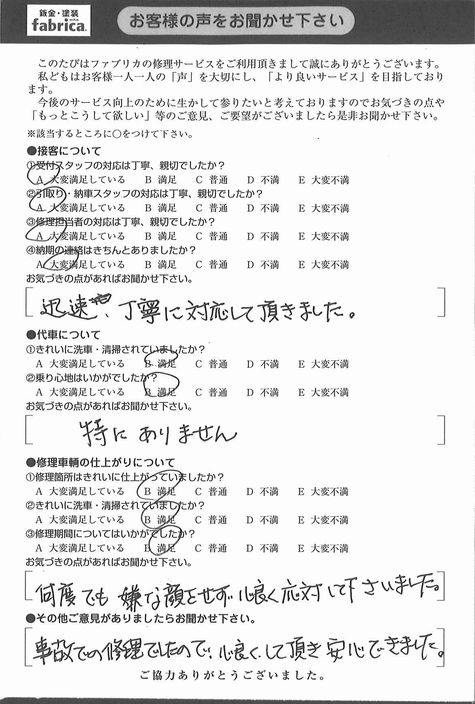 鈑金・塗装
fabrica.
お客様の声をお聞かせ下さい
このたびはファブリカの修理サービスをご利用頂きまして誠にありがとうございます。
私どもはお客様一人一人の「声」を大切にし、「より良いサービス」を目指しており
ます。
今後のサービス向上のために生かして参りたいと考えておりますのでお気づきの点や
「もっとこうして欲しい」等のご意見、ご要望がございましたら是非お聞かせ下さい。
※該当するところに〇をつけて下さい。
●接客について
①受付スタッフの対応は丁寧、親切でしたか?
A 大変満足している B 満足 C 普通 D 不満 E 大変不満
②引取り・納車スタッフの対応は丁寧、親切でしたか?
A 大変満足している B 満足 C 普通 D 不満 E 大変不満
③修理担当者の対応は丁寧、親切でしたか?
A 大変満足している B 満足 C 普通 D 不満 E 大変不満
④納期の連絡はきちんとありましたか?
A 大変満足している B 満足 C 普通 D 不満 E 大変不満
お気づきの点があればお聞かせ下さい。
迅速 丁寧に対応して頂きました。
●代車について
①きれいに洗車・清掃されていましたか?
A 大変満足している B 満足 C 普通 D 不満 E 大変不満
②乗り心地はいかがでしたか?
A 大変満足している B 満足 C 普通 D 不満 E 大変不満
お気づきの点があればお聞かせ下さい。
特にありません
●修理車輌の仕上がりについて
①修理箇所はきれいに仕上がっていましたか?
A 大変満足している B 満足 C 普通 D 不満 E 大変不満
②きれいに洗車・清掃されていましたか?
A 大変満足している B 満足 C 普通 D 不満 E 大変不満
③修理期間についてはいかがでしたか?
A 大変満足している B 満足 C 普通 D 不満 E 大変不満
お気づきの点があればお聞かせ下さい。
何度でも嫌な顔をせず心良く応対して下さいました。
●その他ご意見がありましたらお聞かせ下さい。
事故での修理でしたので、心良くして頂き安心できました。
ご協力ありがとうございました。